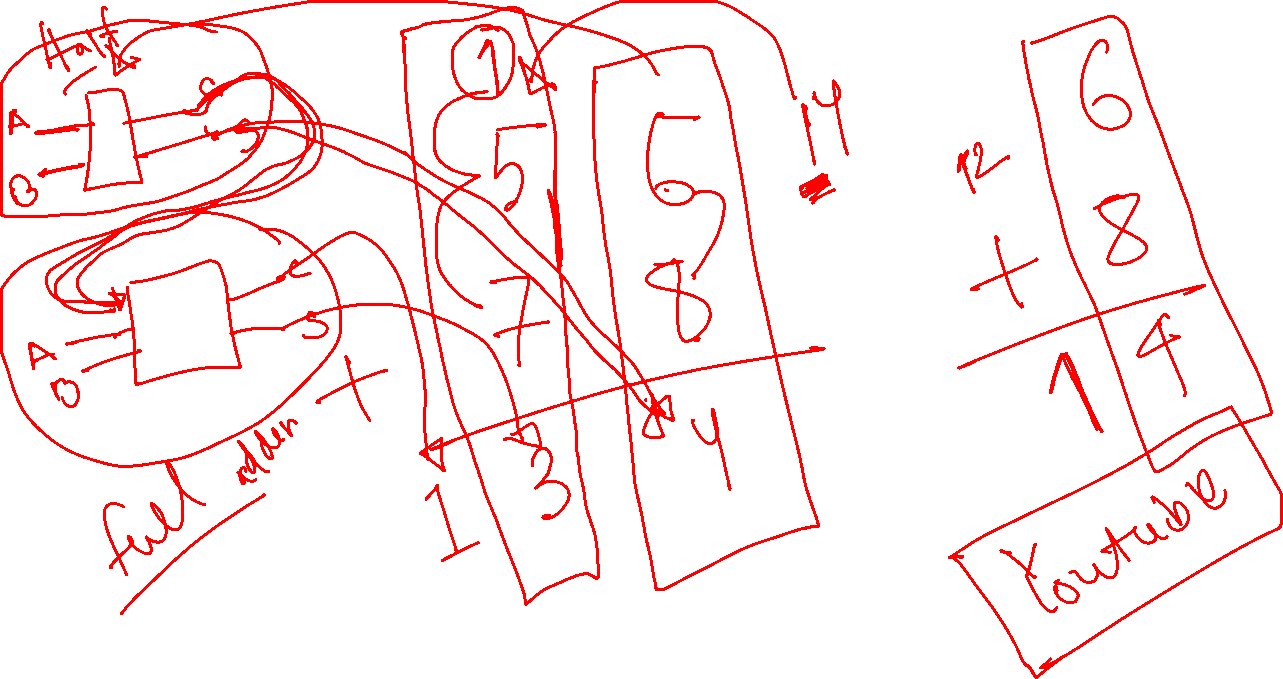 Half
A
B
C
S
A
B
C
S
Full adder
+
1
5 6
7 8
1 3 4
14
12
6
+ 8
1 4
Youtube